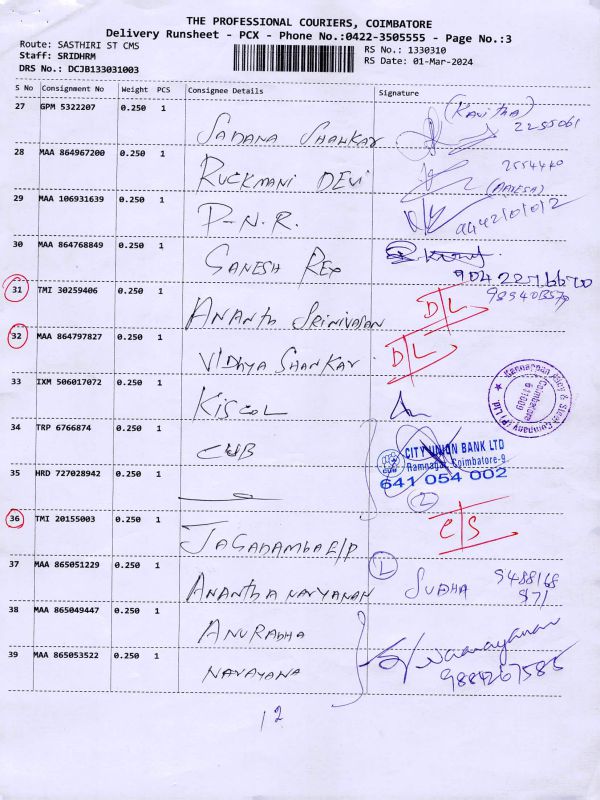 THE PROFESSIONAL COURIERS, COIMBATORE
Delivery Runsheet - PCX - Phone No.:0422-3505555 - Page No.:3
Route: SASTHIRI ST CMS
RS No.: 1330310
Staff: SRIDHRM
RS Date: 01-Mar-2024
DRS No.: DCJB133031003
S No Consignment No Weight PCS Consignee Details Signature
27 GPM 5322207 0.250 1
(Kavitha)
2255061
SADANA SHANKAR
28 MAA 864967200 0.250 1
2554440
RUCKMANI DEVI
29 MAA 106931639 0.250 1
P-N.R.
30 MAA 864768849 0.250 1
GANESH REX
31 TMI 30259406 0.250 1
ANANTH SRINIVASAN D/L
32 MAA 864797827 0.250 1
VIDHYA SHANKAR D/L
33 IXM 506017072 0.250 1
KISCOL
Kannappan Alloy & Steel Company (P) Ltd.
Coimbatore
34 TRP 6766874 0.250 1
CUB
CITY UNION BANK LTD
Ramnagar, Coimbatore-9.
641 054 002
35 HRD 727028942 0.250 1
(2)
36 TMI 20155003 0.250 1
C/S
JAGADAMBA E/P
37 MAA 865051229 0.250 1
L
ANANTHANARYANAN SUDHA 9488168
871
38 MAA 865049447 0.250 1
ANURADHA
39 MAA 865053522 0.250 1
Naarayanan
9884267585
NARAYANA
12